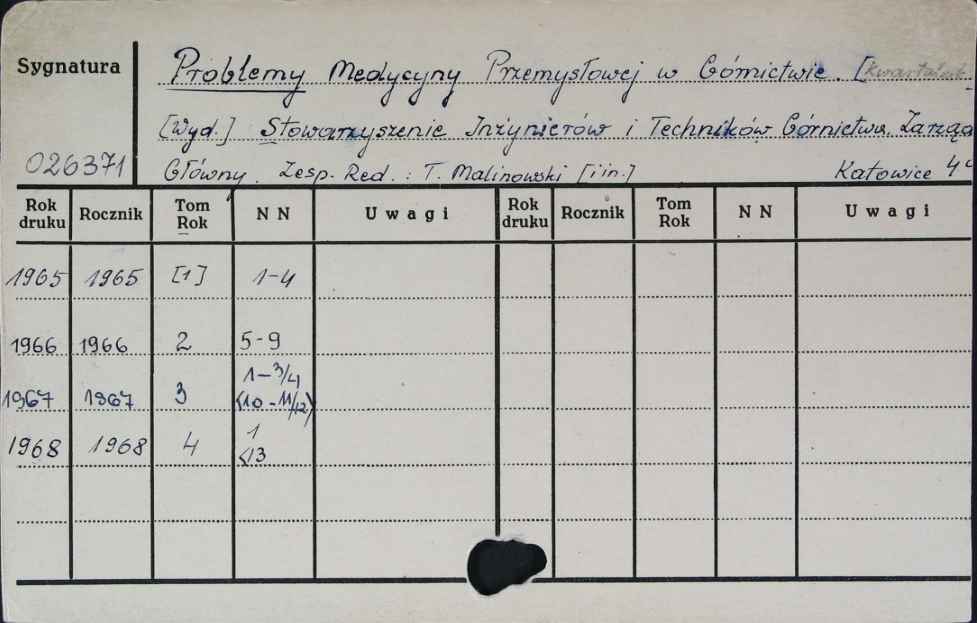 Sygnatura
Problemy Medycyny Przemysłowej w Górnictwie. [Kwartalnik
[Wyd.] Stowarzyszenie Inżynierów i Techników Górnictwa. Zarząd
026371 Główny. Zesp. Red.: T. Malinowski [i in.] Katowice 4°
Rok druku Rocznik Tom Rok N N Uwagi Rok druku Rocznik Tom Rok N N Uwagi
1965 1965 [1] 1-4
1966 1966 2 5-9
1967 1967 3 1-3/4
<10-11/12>
1968 1968 4 1
<13